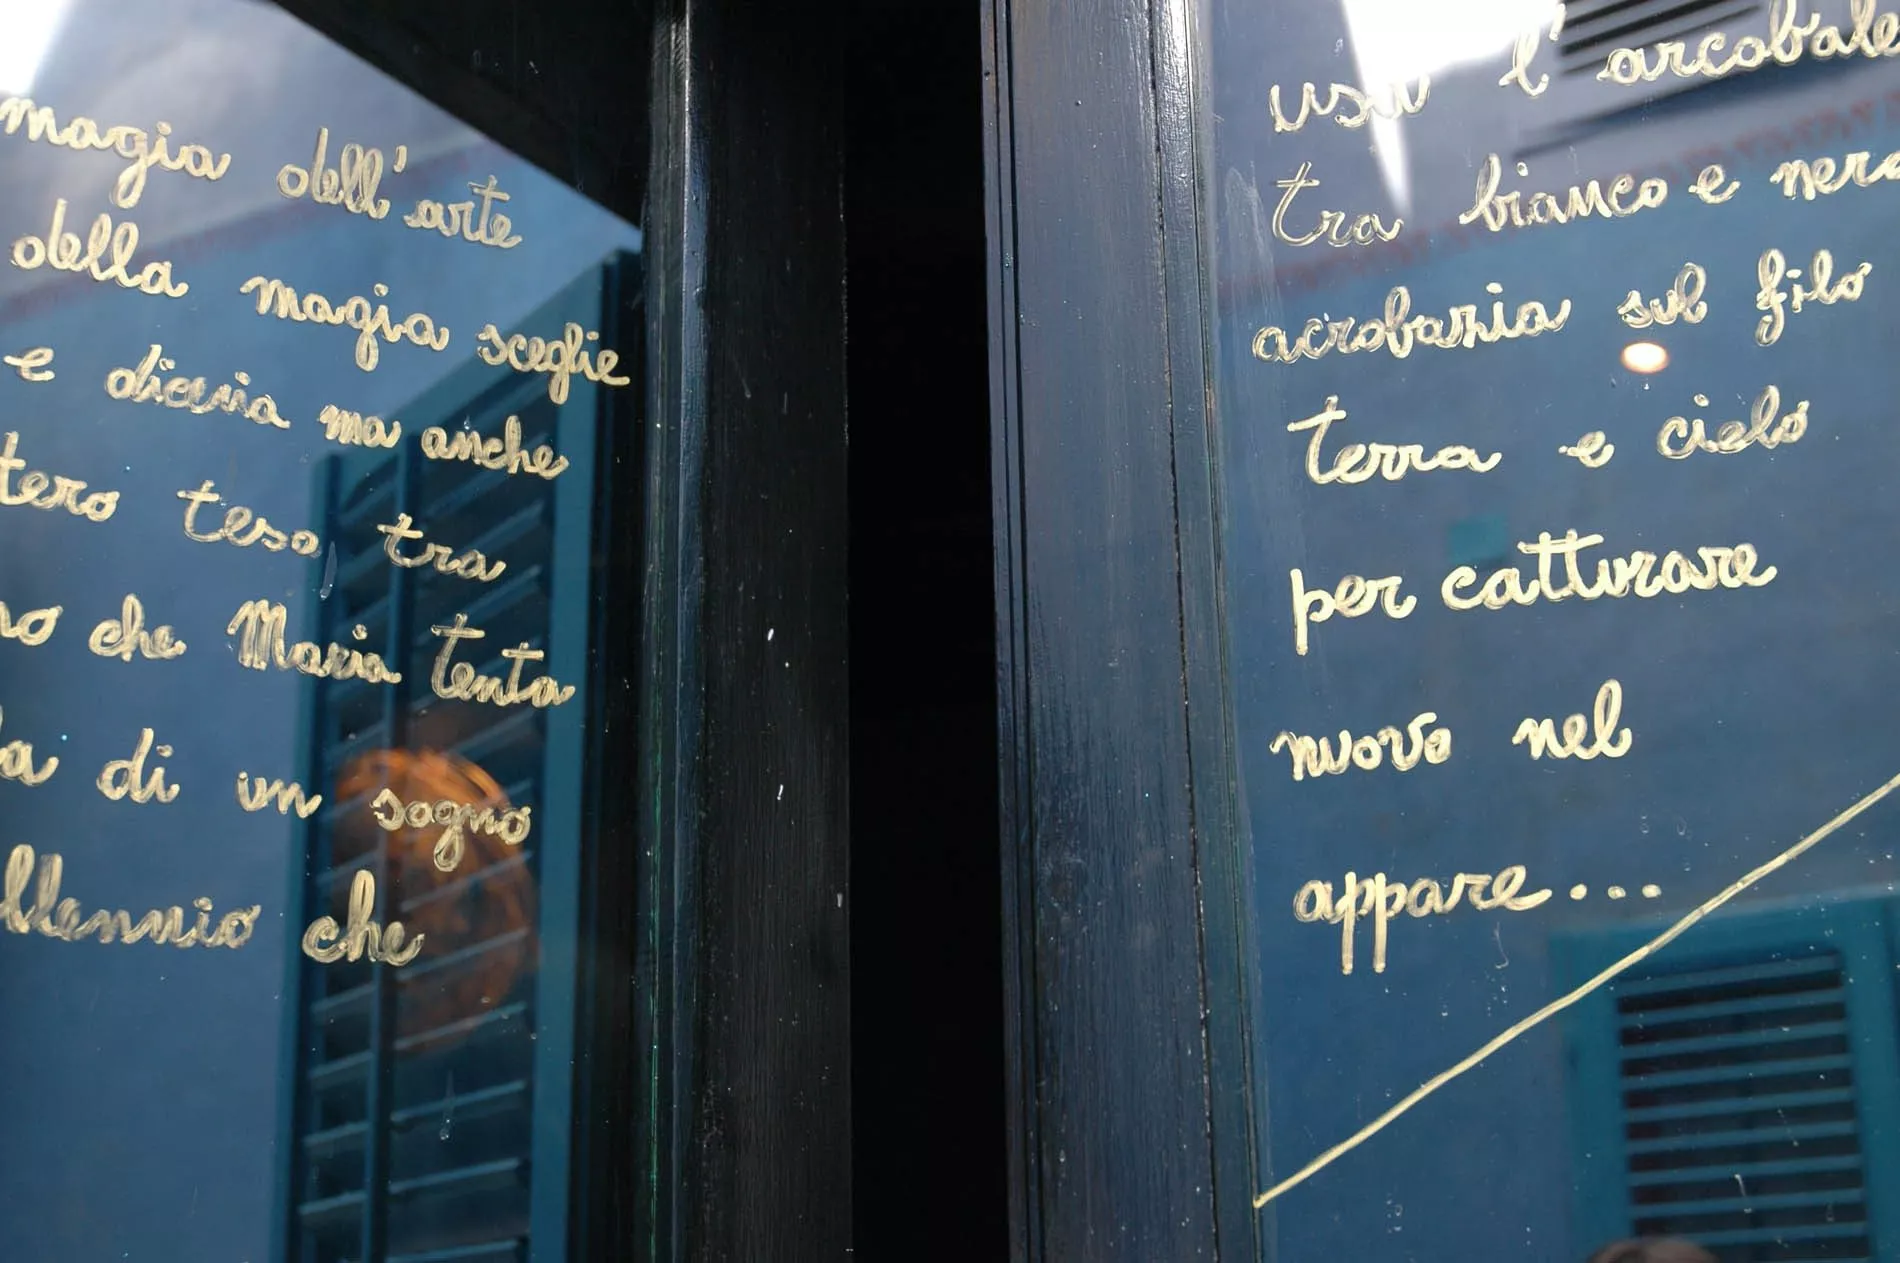 magia dell'arte
della magia sceglie
e diceria ma anche
tero teso tra
no che Maria tenta
la di un sogno
llennio che
usa l'arcobale
tra bianco e nero
acrobazia sul filo
terra e cielo
per catturare
nuovo nel
appare...